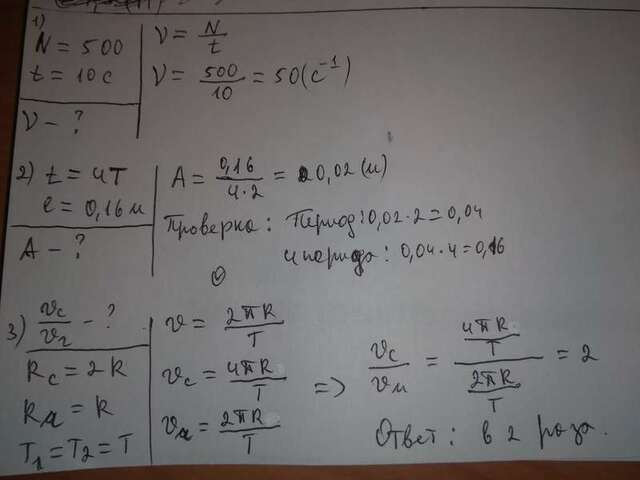 1)
N = 500
t = 10 c
V - ?
V = N/t
V = 500/10 = 50 (c⁻¹)
2) t = 4T
l = 0,16 м
A - ?
A = 0,16/4·2 = 0,02 (м)
Проверка: Период: 0,02·2 = 0,04
4 периода: 0,04·4 = 0,16
3) vc/v2 - ?
Rc = 2R
RM = R
T1 = T2 = T
v = 2πR/T
vc = 4πR/T
vM = 2πR/T
=> vc/vм = 4πR/T / 2πR/T = 2
Ответ: в 2 раза.